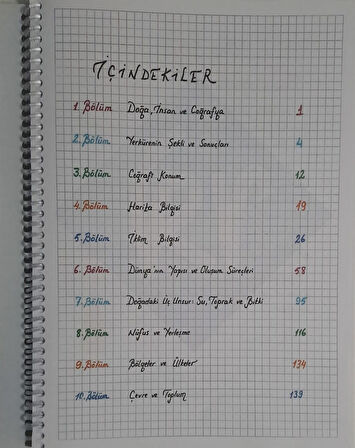 İÇİNDEKİLER
1. Bölüm Doğa, İnsan ve Coğrafya 1
2. Bölüm Yerkürenin Şekli ve Sonuçları 4
3. Bölüm Coğrafi Konum 12
4. Bölüm Harita Bilgisi 19
5. Bölüm İklim Bilgisi 26
6. Bölüm Dünya'nın Yapısı ve Oluşum Süreçleri 58
7. Bölüm Doğadaki Üç Unsur: Su, Toprak ve Bitki 95
8. Bölüm Nüfus ve Yerleşme 116
9. Bölüm Bölgeler ve Ülkeler 134
10. Bölüm Çevre ve Toplum 139